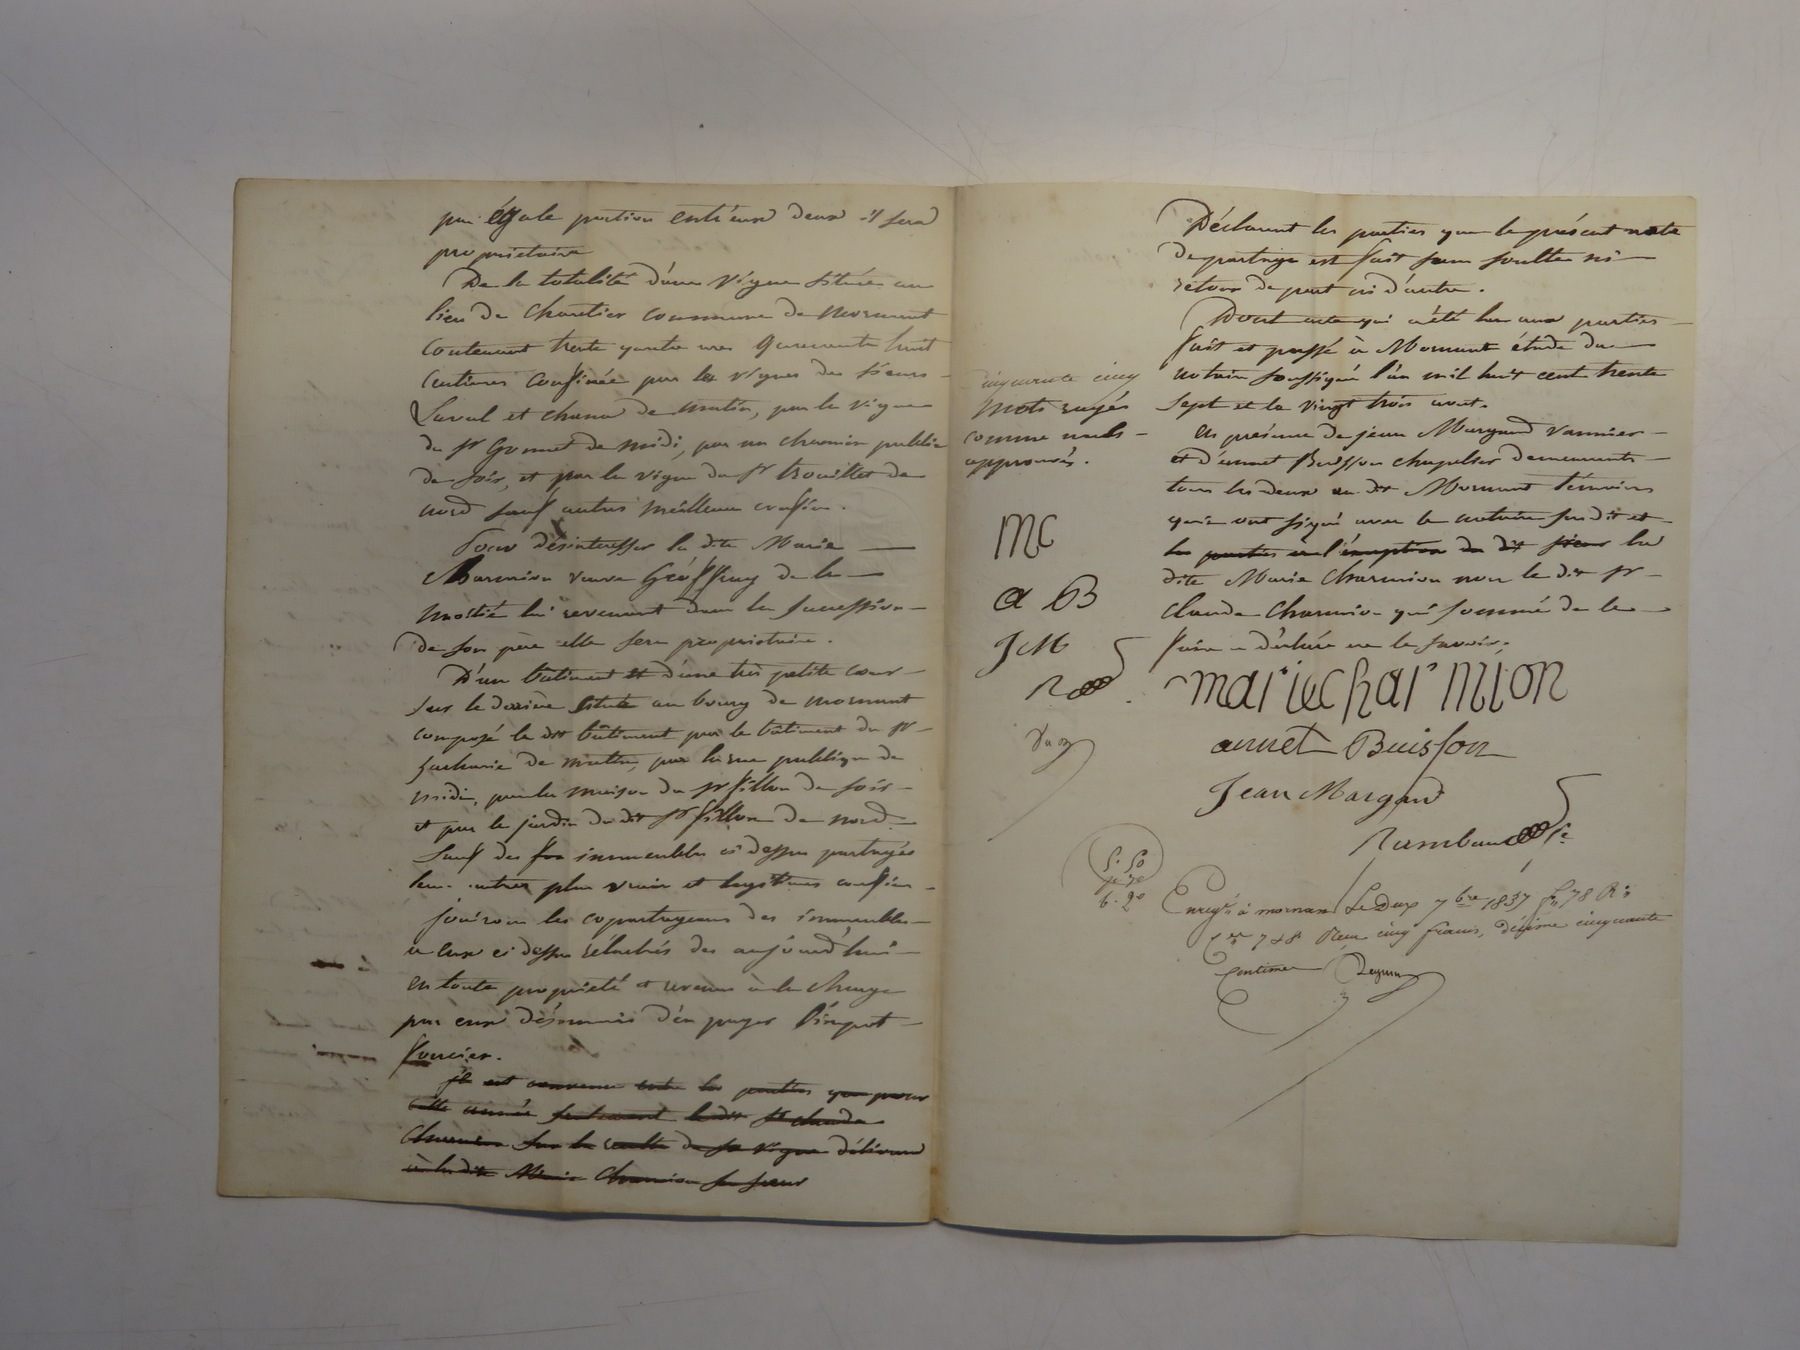 par égale portion entr'eux deux il sera
propriétaire
De la totalité d'une vigne située au
lieu de Chartier commune de Mornant
contenant trente quatre ares quarante huit
centiares confinée par les vignes des sieurs
Laval et de matin, par la vigne
du sr Gonnet de midi, par un chemin public
de soir, et par la vigne du sr trouillet de
nord sauf autres meilleurs confins.
Pour désintéresser la dite Marie
Charmion veuve de la
moitié lui revenant dans la succession
de son père elle sera propriétaire.
D'un bâtiment et d'une très petite cour
sur le derrière situés au bourg de mornant
composé le dit bâtiment par le bâtiment du sr
Zacharie de matin, par la rue publique de
midi, par la maison du sr fillon de soir
et par le jardin du dit sr fillon de nord
Sauf des immeubles ci dessus partagés
leurs autres plus vrais et légitimes confins
jouiront les copartageans des immeubles
à eux ci dessus relachés dès aujourd'hui
en toute propriété et revenus à la charge
par eux désormais d'en payer l'impot
foncier.
il est convenu entre les parties que pour
cette année seulement le dit sr claude
Charmion sur la récolte de sa vigne délivrera
à la dite Marie Charmion sa sœur
Déclarent les parties que le présent acte
de partage est fait sans soulte ni
retour de part ni d'autre.
Dont acte qui a été lu aux parties
fait et passé à Mornant étude du
notaire soussigné l'an mil huit cent trente
sept et le vingt trois aout.
en présence de jean Margand vannier
et d'annet Buisson chapelier demeurants
tous les deux au dit Mornant témoins
qui ont signé avec le notaire susdit et
les parties à l'exception du dit sieur la
dite Marie Charmion non le dit sr
claude Charmion qui sommé de le
faire a déclaré ne le savoir,
cinquante cinq
mots rayés
comme nuls
approuvés.
MC
a B
JM
R
marie charmion
annet Buisson
Jean Margand
Rambaud
5. 50
6. 20
Enregé à mornant Le Deux 7bre 1837 fo 78 Ro
Reçu cinq francs, décime cinquante
Centimes